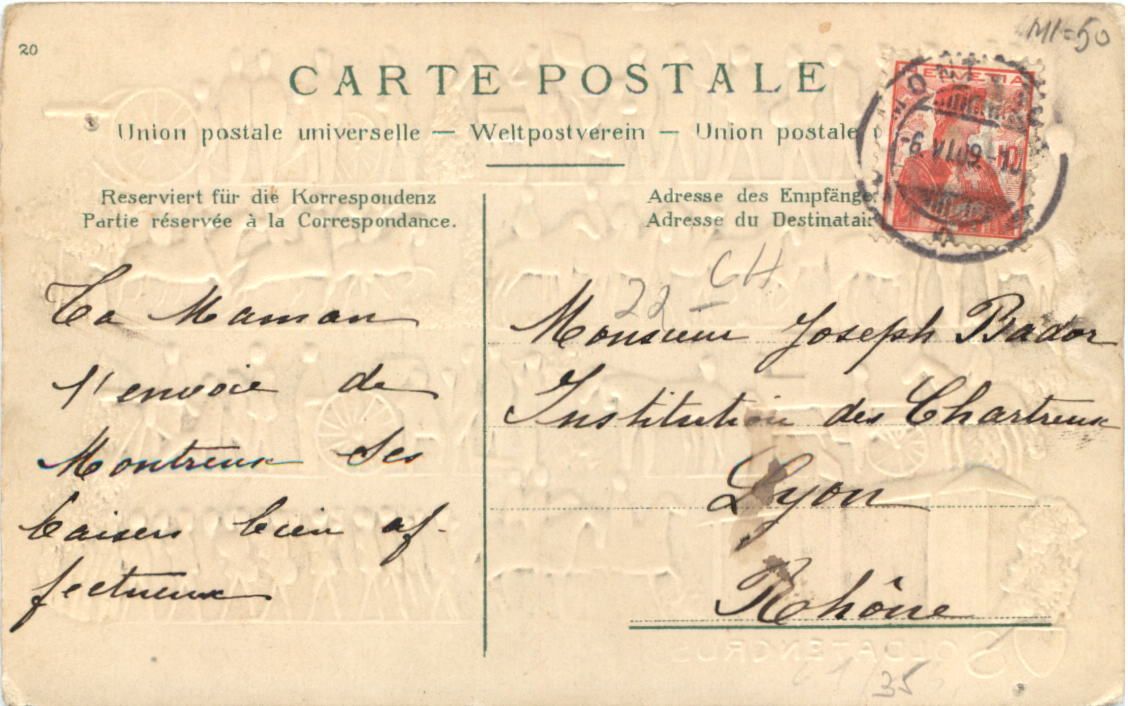 MI-50
20
CARTE POSTALE
Union postale universelle — Weltpostverein — Union postale
HELVETIA
10
6 VI.09-10
Reserviert für die Korrespondenz
Partie réservée à la Correspondance.
Adresse des Empfänge
Adresse du Destinatair
22 CH
Ta Maman
t'envoie de
Montreux ses
baisers bien af-
fectueux
Monsieur Joseph Bador
Institution des Chartreux
Lyon
Rhône
SOLDATENGRUSS
35